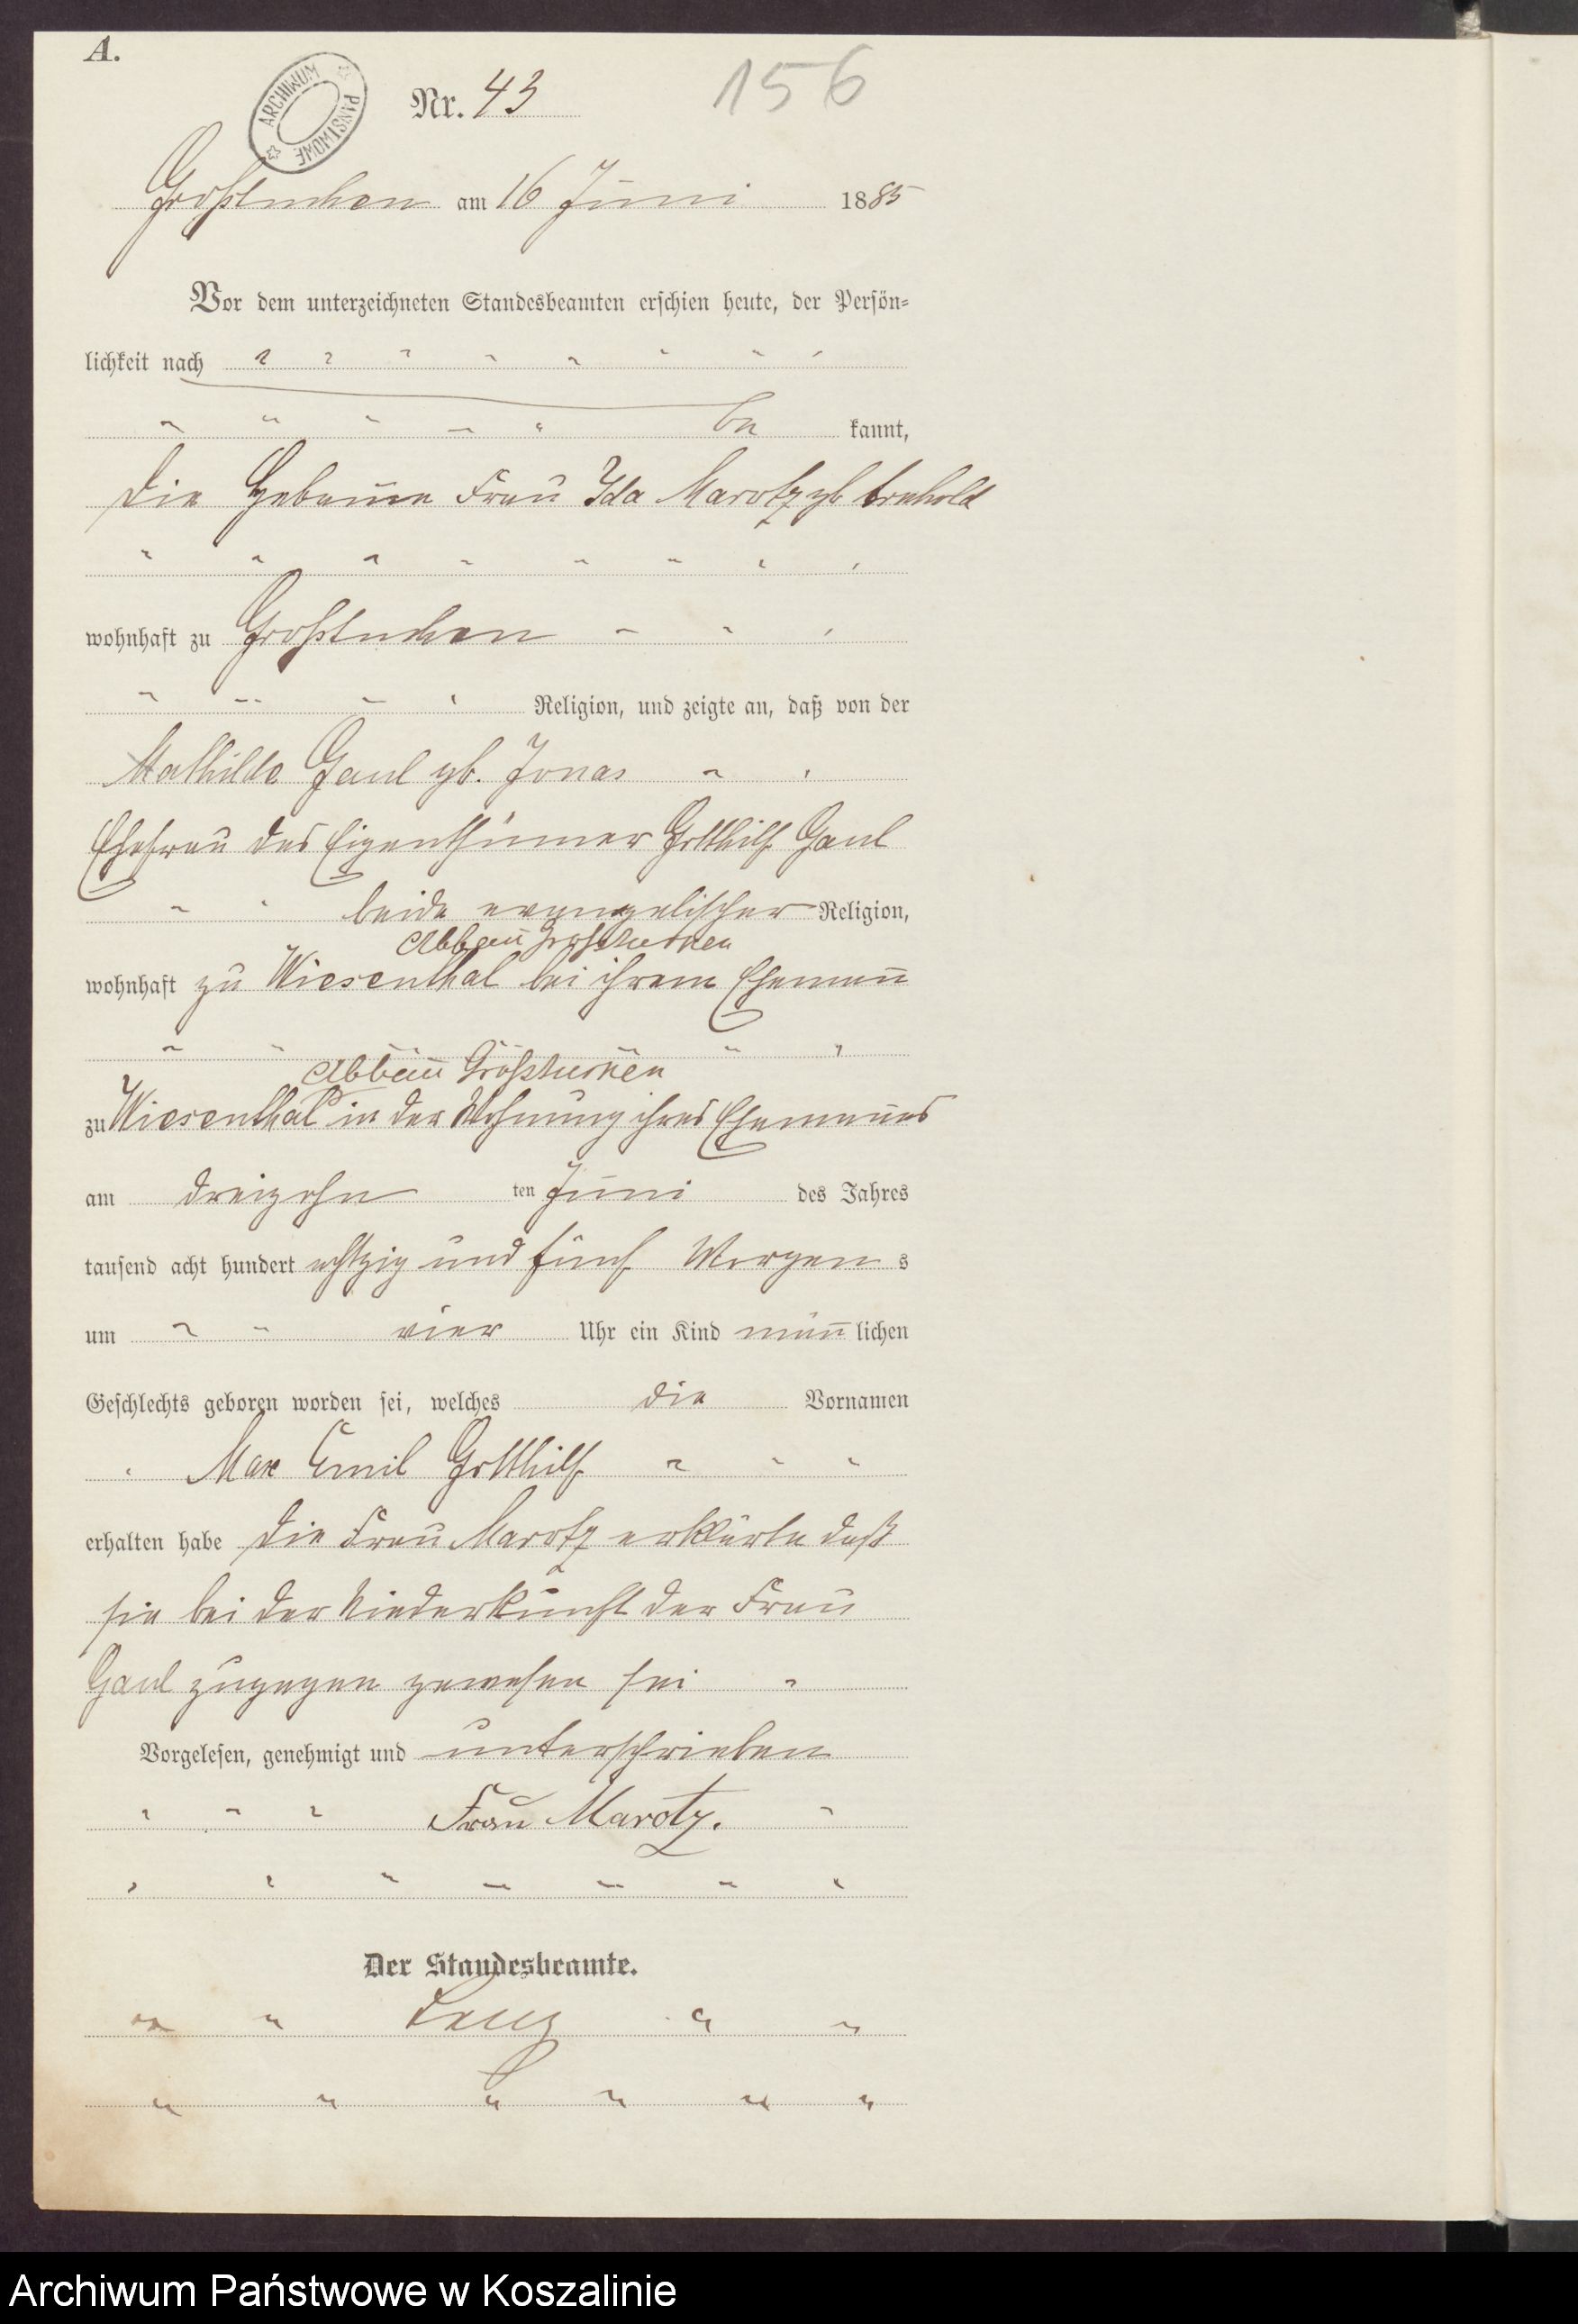 A.
ARCHIWUM PAŃSTWOWE
Nr. 43
156
Großtuchen am 16 Juni 1885
Vor dem unterzeichneten Standesbeamten erschien heute, der Persön-
lichkeit nach
be kannt,
die Hebamme Frau Ida Marotz gb
wohnhaft zu Großtuchen
Religion, und zeigte an, daß von der
Mathilde Gaul gb. Jonas
Ehefrau des Eigenthümer Gotthilf Gaul
beide evangelischer Religion,
Abbau Großtuchen
wohnhaft zu Wiesenthal bei ihrem Ehemann
Abbau Großtuchen
zu Wiesenthal in der Wohnung ihres Ehemannes
am dreizehn ten Juni des Jahres
tausend acht hundert achtzig und fünf Morgen s
um vier Uhr ein Kind männlichen
Geschlechts geboren worden sei, welches die Vornamen
Max Emil Gotthilf
erhalten habe die Frau Marotz erklärte daß
sie bei der Niederkunft der Frau
Gaul zugegen gewesen sei
Vorgelesen, genehmigt und unterschrieben
Frau Marotz.
Der Standesbeamte.
Archiwum Państwowe w Koszalinie